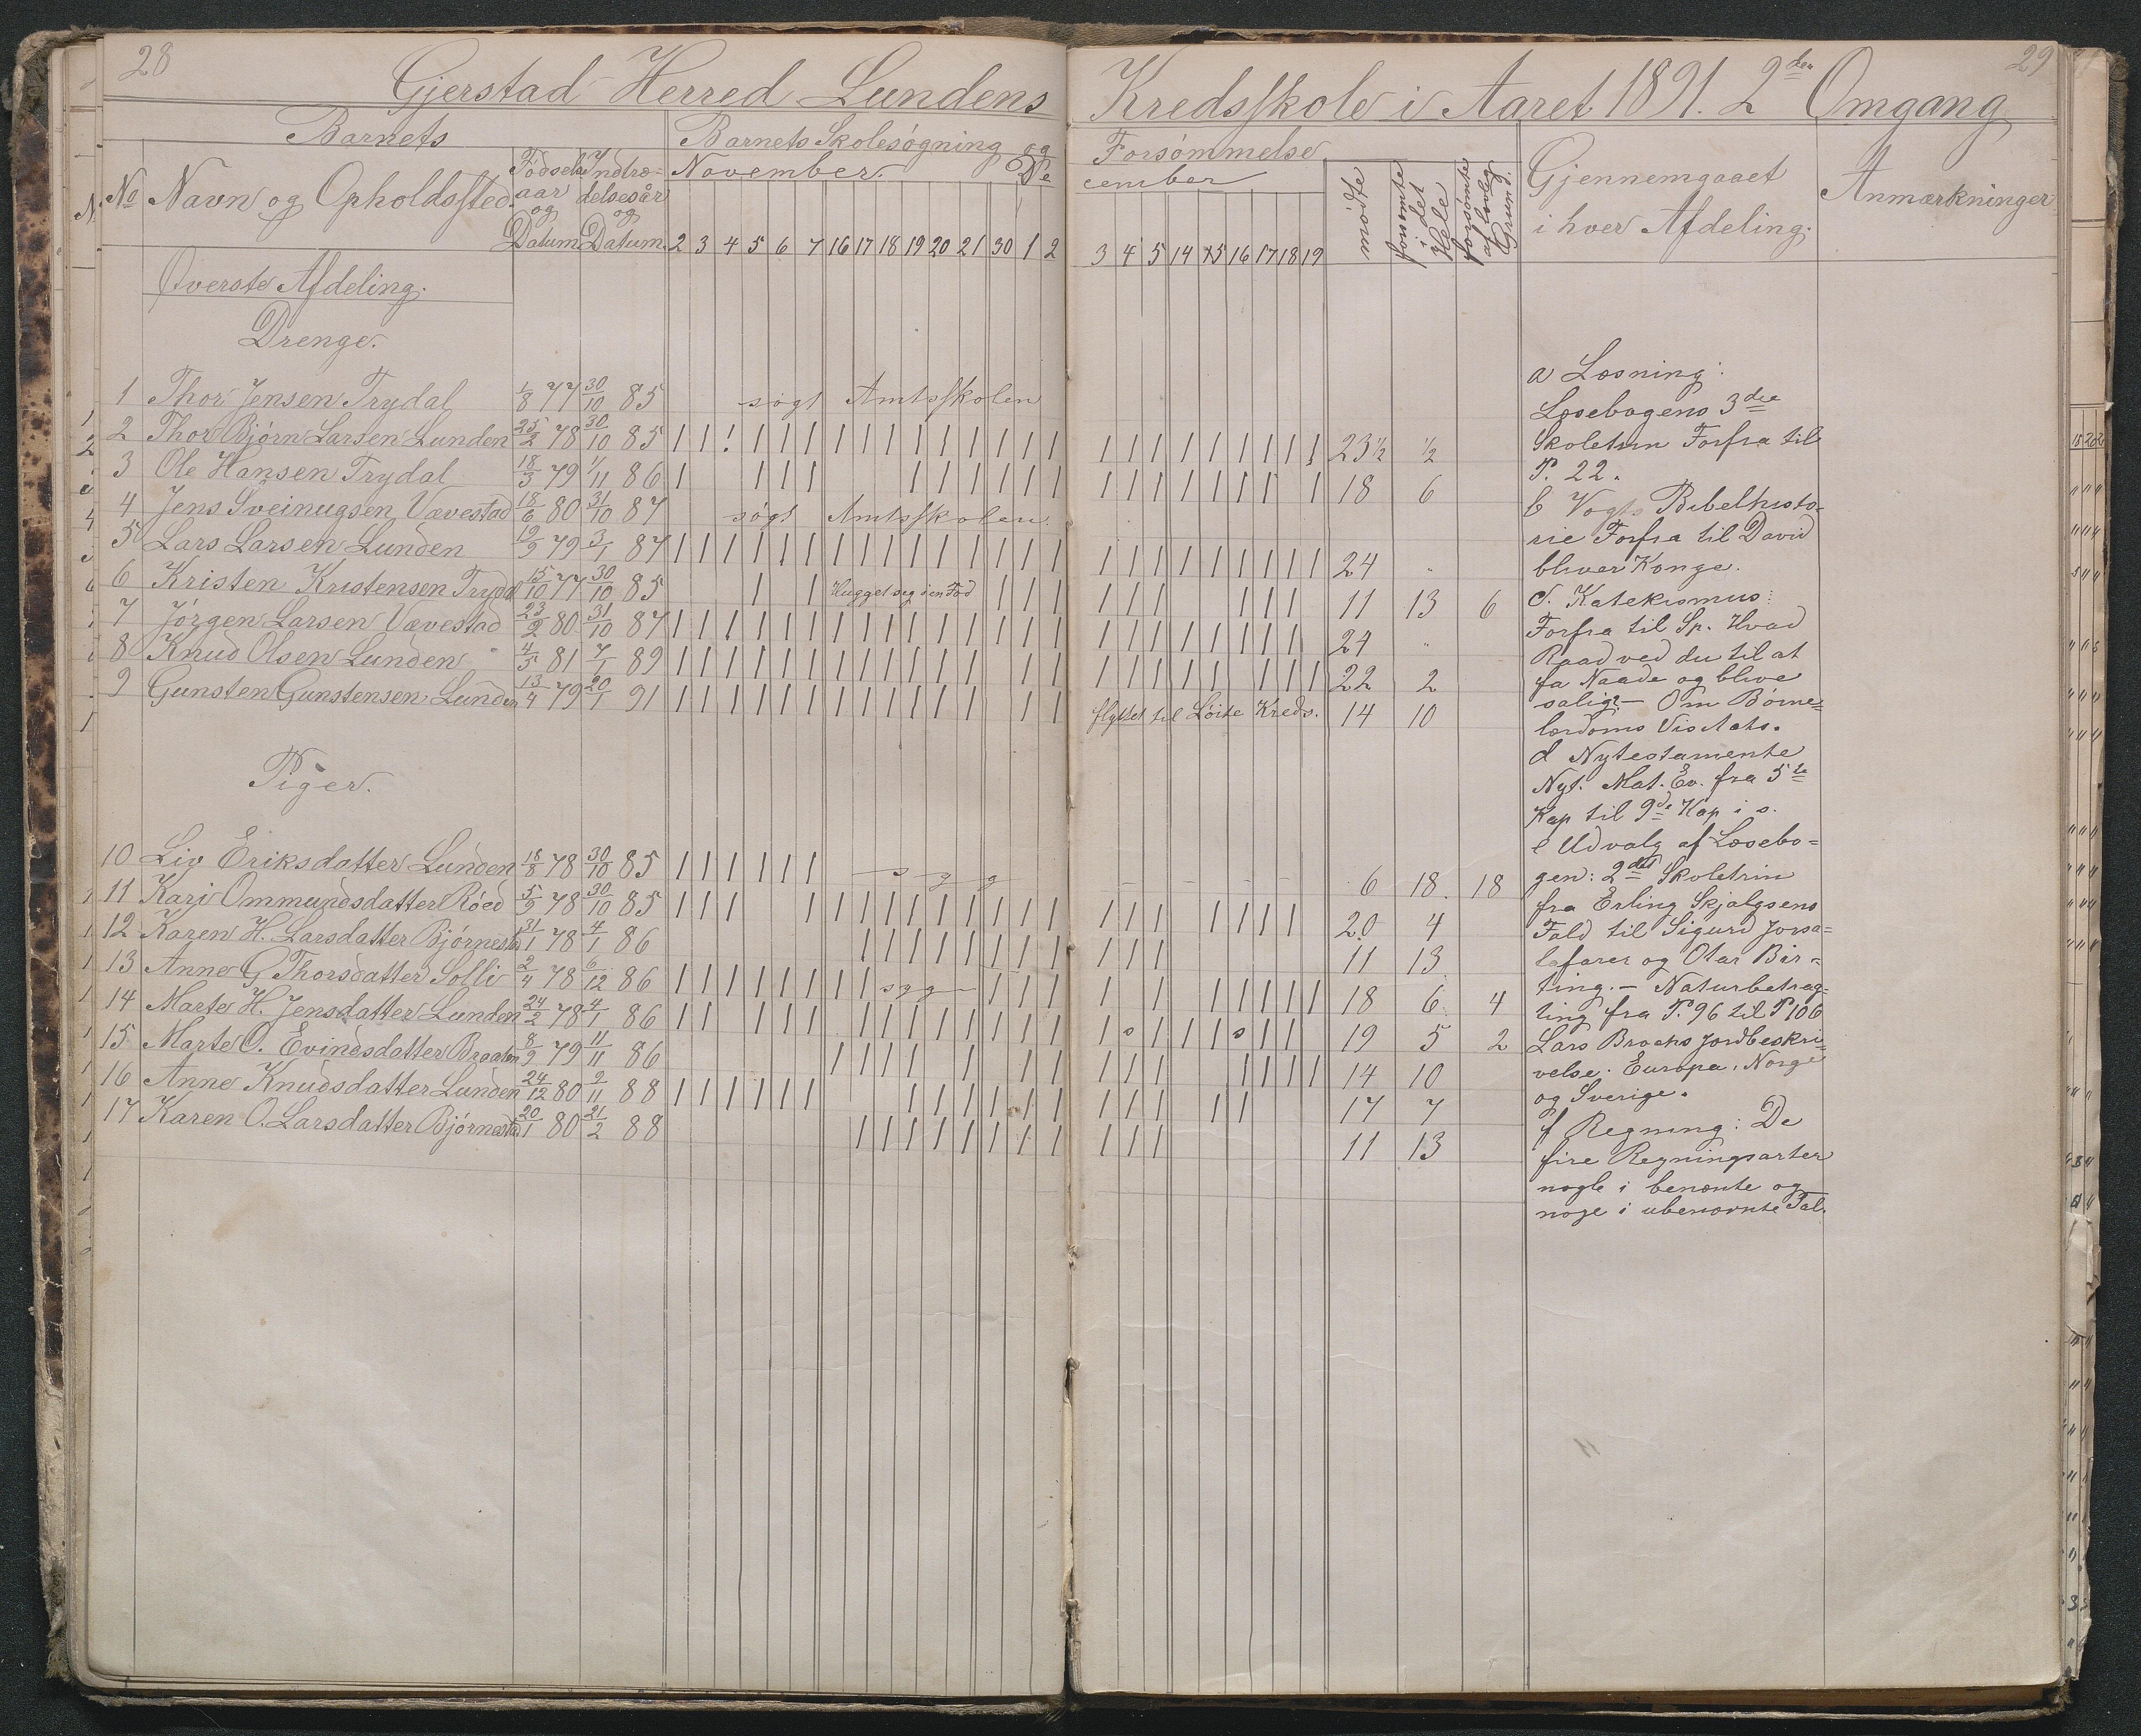 28
Gjerstad Herred Lundens
Barnets
Barnets Skolesøgning og
No
Navn og Opholdssted.
Fødsels
aar
og
Datum
Indtræ-
delsesår
og
Datum.
November.
De
2 3 4 5 6 7 16 17 18 19 20 21 30 1 2
Øverste Afdeling.
Drenge.
1 Thor Jensen Trydal 1/8 77 30/10 85 søgt Amtsskolen
2 Thor Bjørn Larsen Lunden 25/2 78 30/10 85
3 Ole Hansen Trydal 18/3 79 1/11 86
4 Jens Sveinugsen Vævestad 18/6 80 31/10 87 søgt Amtsskolen
5 Lars Larsen Lunden 19/9 79 3/1 87
6 Kristen Kristensen Trydal 15/10 77 30/10 85 Hugget sig i en Fod
7 Jørgen Larsen Vævestad 23/2 80 31/10 87
8 Knud Olsen Lunden 4/5 81 7/1 89
9 Gunsten Gunstensen Lunden 13/4 79 20/1 91
Piger.
10 Liv Eriksdatter Lunden 18/8 78 30/10 85 s y g
11 Kari Ommundsdatter Röed 5/9 78 30/10 85
12 Karen H. Larsdatter Bjørnestad 31/1 78 4/1 86
13 Anne G Thorsdatter Solli 2/4 78 6/12 86 syg
14 Marte H. Jensdatter Lunden 24/2 78 4/1 86
15 Marte O. Evindsdatter Braaten 8/9 79 11/11 86
16 Anne Knudsdatter Lunden 24/12 80 9/11 88
17 Karen O. Larsdatter Bjørnestad 20/1 80 21/2 88
29
Kredsskole i Aaret 1891. 2den Omgang
Forsømmelse
cember
3 4 5 14 15 16 17 18 19
mødte
forsømte
i det
Hele
forsømte
af lovlig
Grund.
Gjennemgaaet
i hver Afdeling.
Anmærkninger
23½ ½
18 6
24 "
11 13 6
24 "
22 2
flyttet til Löite Kreds. 14 10
6 18 18
20 4
11 13
18 6 4
s s 19 5 2
14 10
17 7
11 13
a Læsning:
Læsebogens 3die
Skoletrin Forfra til
P. 22.
b Vogts Bibelhisto-
rie Forfra til David
bliver Konge.
c. Katekismus:
Forfra til Sp. Hvad
Raad ved du til at
fa Naade og blive
salig? - Om Børne-
lærdoms
d Nytestamente
Nyt. Mat. Ev. fra 5te
Kap til 9de Kap i s.
e Udvalg af Læsebo-
gen: 2det Skoletrin
fra Erling Skjalgsens
Fald til Sigurd Jorsa-
lafarer og Otar Bir-
ting. - Naturbetrag-
ting fra P. 96 til P 106
Lars Brochs Jordbeskri-
velse. Europa, Norge
og Sverige.
f Regning: De
fire Regningsarter
nogle i benænte og
noge i ubenænte Tal.